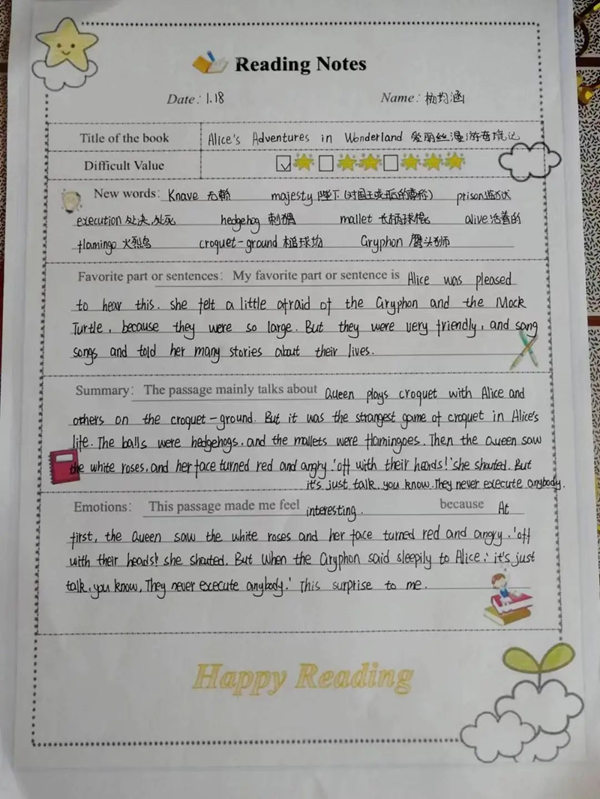 Reading Notes
Date: 1.18 Name: 杨均涵
Title of the book Alice's Adventures in Wonderland 爱丽丝漫游奇境记
Difficult Value
New words: Knave 无赖 majesty 陛下(对国王或王后的尊称) prison 监狱
execution 处决 处死 hedgehog 刺猬 mallet 长柄球棍 alive 活着的
flamingo 火烈鸟 croquet-ground 槌球场 Gryphon 鹰头狮
Favorite part or sentences: My favorite part or sentence is Alice was pleased
to hear this. she felt a little afraid of the Gryphon and the Mock
Turtle, because they were so large. But they were very friendly, and sang
songs and told her many stories about their lives.
Summary: The passage mainly talks about Queen plays croquet with Alice and
others on the croquet-ground But it was the strangest game of croquet in Alice's
life. The balls were hedgehogs, and the mallets were flamingoes. Then the Queen saw
the white roses, and her face turned red and angry 'off with their heads!' she shouted. But
it's just talk, you know. They never execute anybody.
Emotions: This passage made me feel interesting. because At
first, the Queen saw the white roses and her face turned red and angry. 'off
with their heads! she shouted. But when the Gryphon said sleepily to Alice: 'it's just
talk, you know, They never execute anybody.' This surprise to me.
Happy Reading